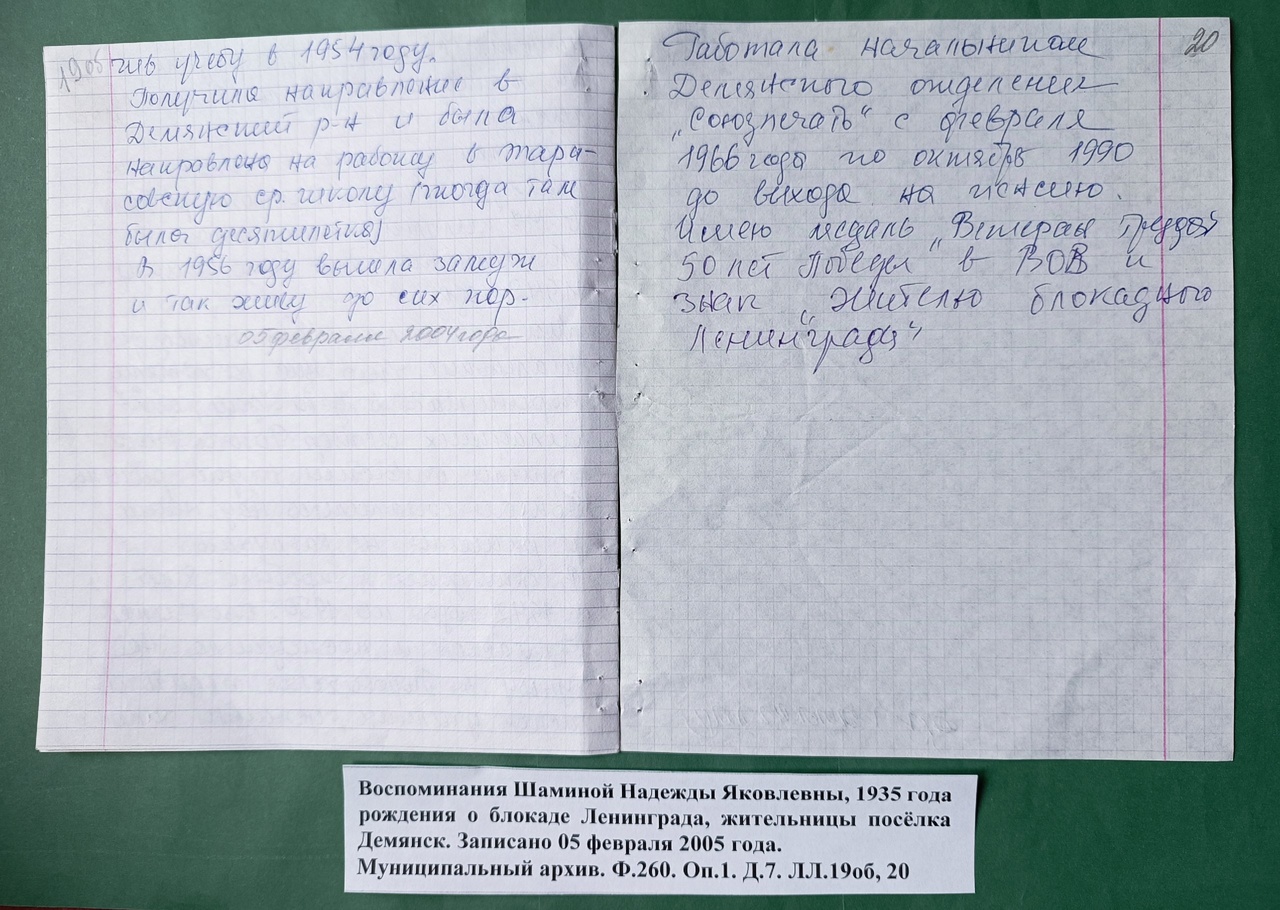 19об
чив учебу в 1954 году.
Получила направление в
Демянский р-н и была
направлена на работу в Тара-
совскую ср. школу (тогда там
была десятилетка)
В 1956 году вышла замуж
и так живу до сих пор.
05 февраля 2004 года
20
Работала начальником
Демянского отделения
„Союзпечать“ с февраля
1966 года по октябрь 1990
до выхода на пенсию.
Имею медаль „Ветеран труда“
50 лет Победы в ВОВ и
знак „Жителю блокадного
Ленинграда“
Воспоминания Шаминой Надежды Яковлевны, 1935 года
рождения о блокаде Ленинграда, жительницы посёлка
Демянск. Записано 05 февраля 2005 года.
Муниципальный архив. Ф.260. Оп.1. Д.7. ЛЛ.19об, 20